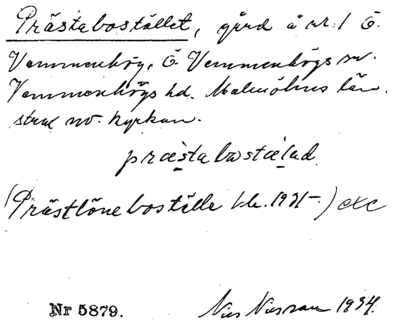 Prästabostället, gård å nr. 1 Ö.
Vemmenhög, Ö. Vemmenhögs sn.
Vemmenhögs hd. Malmöhus län.
strax nv. kyrkan.
præstabostælad
(Prästlöneboställe kl. 1931–) exc
Nr 5879.
Nils Nilsson 1934.